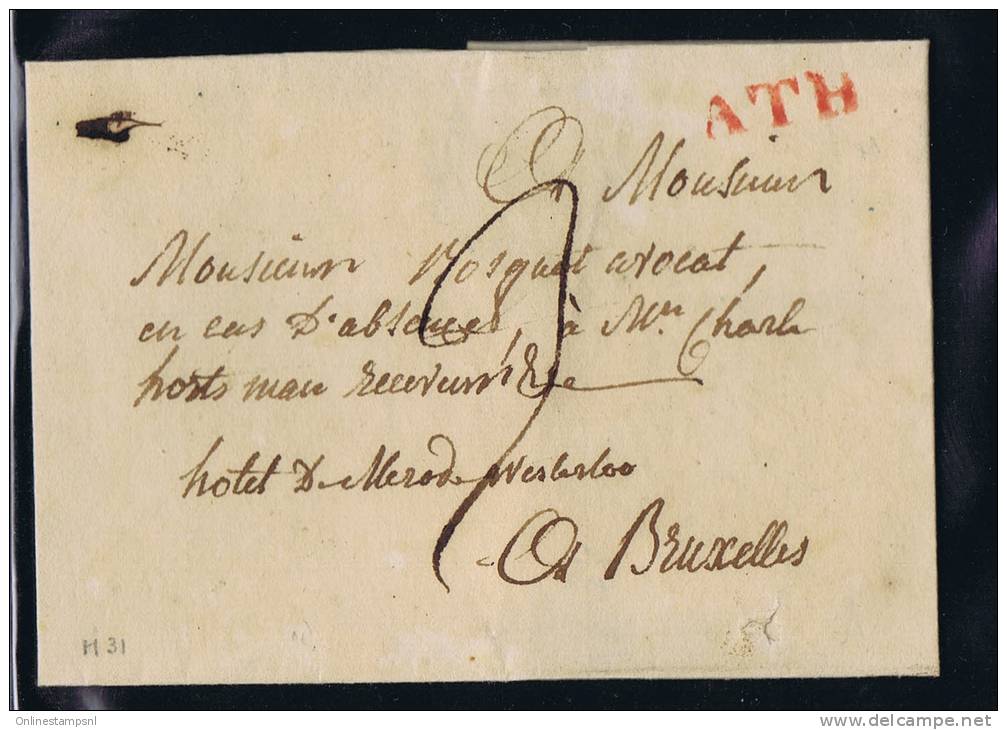 ATH
A Monsieur
Monsieur Bosquet avocat,
en cas D'absence, à Mr. Charle
horts man receveur &c
hotel De Merode Westerloo
A Bruxelles
H 31
Onlinestampsnl
www.delcampe.net